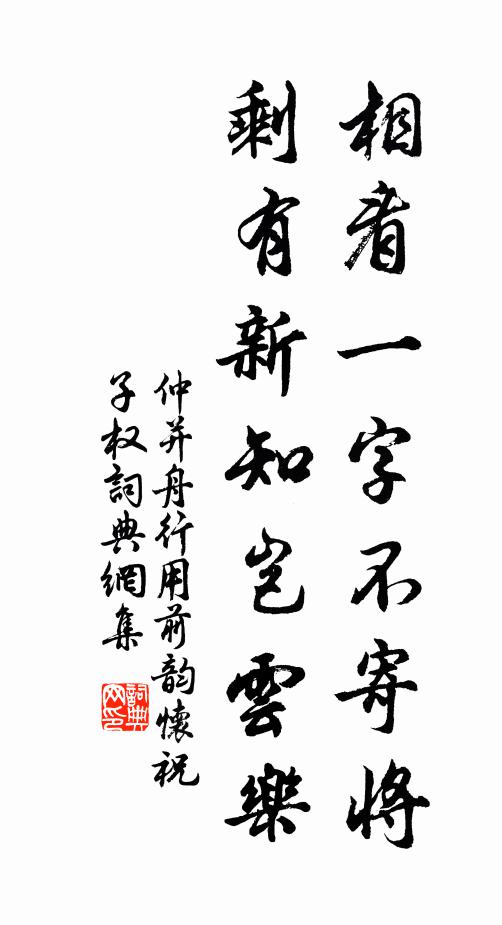 相看一字不寄將
剩有新知豈雲樂
仲并舟行用前韵懷祝
子权詞典網集
詞典網印